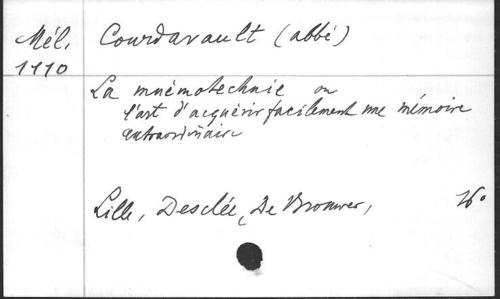 Mél. Courdavault (abbé)
1110
La mnémotechnie ou
l'art d'acquérir facilement une mémoire
extraordinaire
Lille, Desclée, De Brouwer,